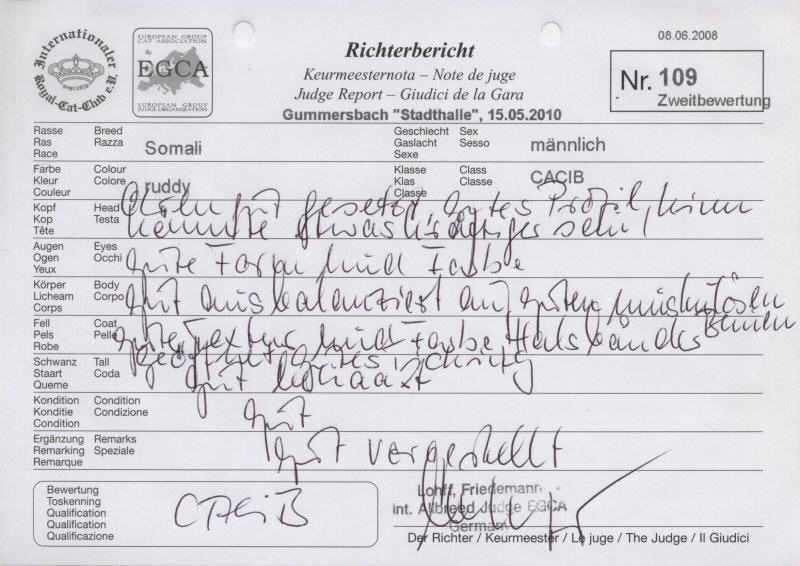 Internationaler
Royal-Cat-Club e.V.
EUROPEAN GROUP
CAT ASSOCIATION
EGCA
EUROPEAN GROUP
JUDGE ORGANIZATION
Richterbericht
Keurmeesternota – Note de juge
Judge Report – Giudici de la Gara
Gummersbach "Stadthalle", 15.05.2010
08.06.2008
Nr. 109
Zweitbewertung
Rasse Breed
Ras Razza
Race
Somali
Geschlecht Sex
Gaslacht Sesso
Sexe
männlich
Farbe Colour
Kleur Colore
Couleur
ruddy
Klasse Class
Klas Classe
Classe
CACIB
Kopf Head
Kop Testa
Tête
Ohren gut gesetzt, gutes Profil, Kinn
könnte etwas kräftiger sein!
Augen Eyes
Ogen Occhi
Yeux
gute Form und Farbe
Körper Body
Licheam Corpo
Corps
gut ausbalanziert auf guten muskulösen
Beinen
Fell Coat
Pels Pelle
Robe
gute Textur und Farbe Halsbandes
geöffnet gutes Ticking
Schwanz Tall
Staart Coda
Querne
gut behaart
Kondition Condition
Konditie Condizione
Condition
gut
Ergänzung Remarks
Remarking Speziale
Remarque
gut vorgestellt
Bewertung
Toskenning
Qualification
Qualification
Qualificazione
CACIB
Lohff, Friedemann
Int. Allbreed Judge EGCA
Germany
Der Richter / Keurmeester / Le juge / The Judge / Il Giudici